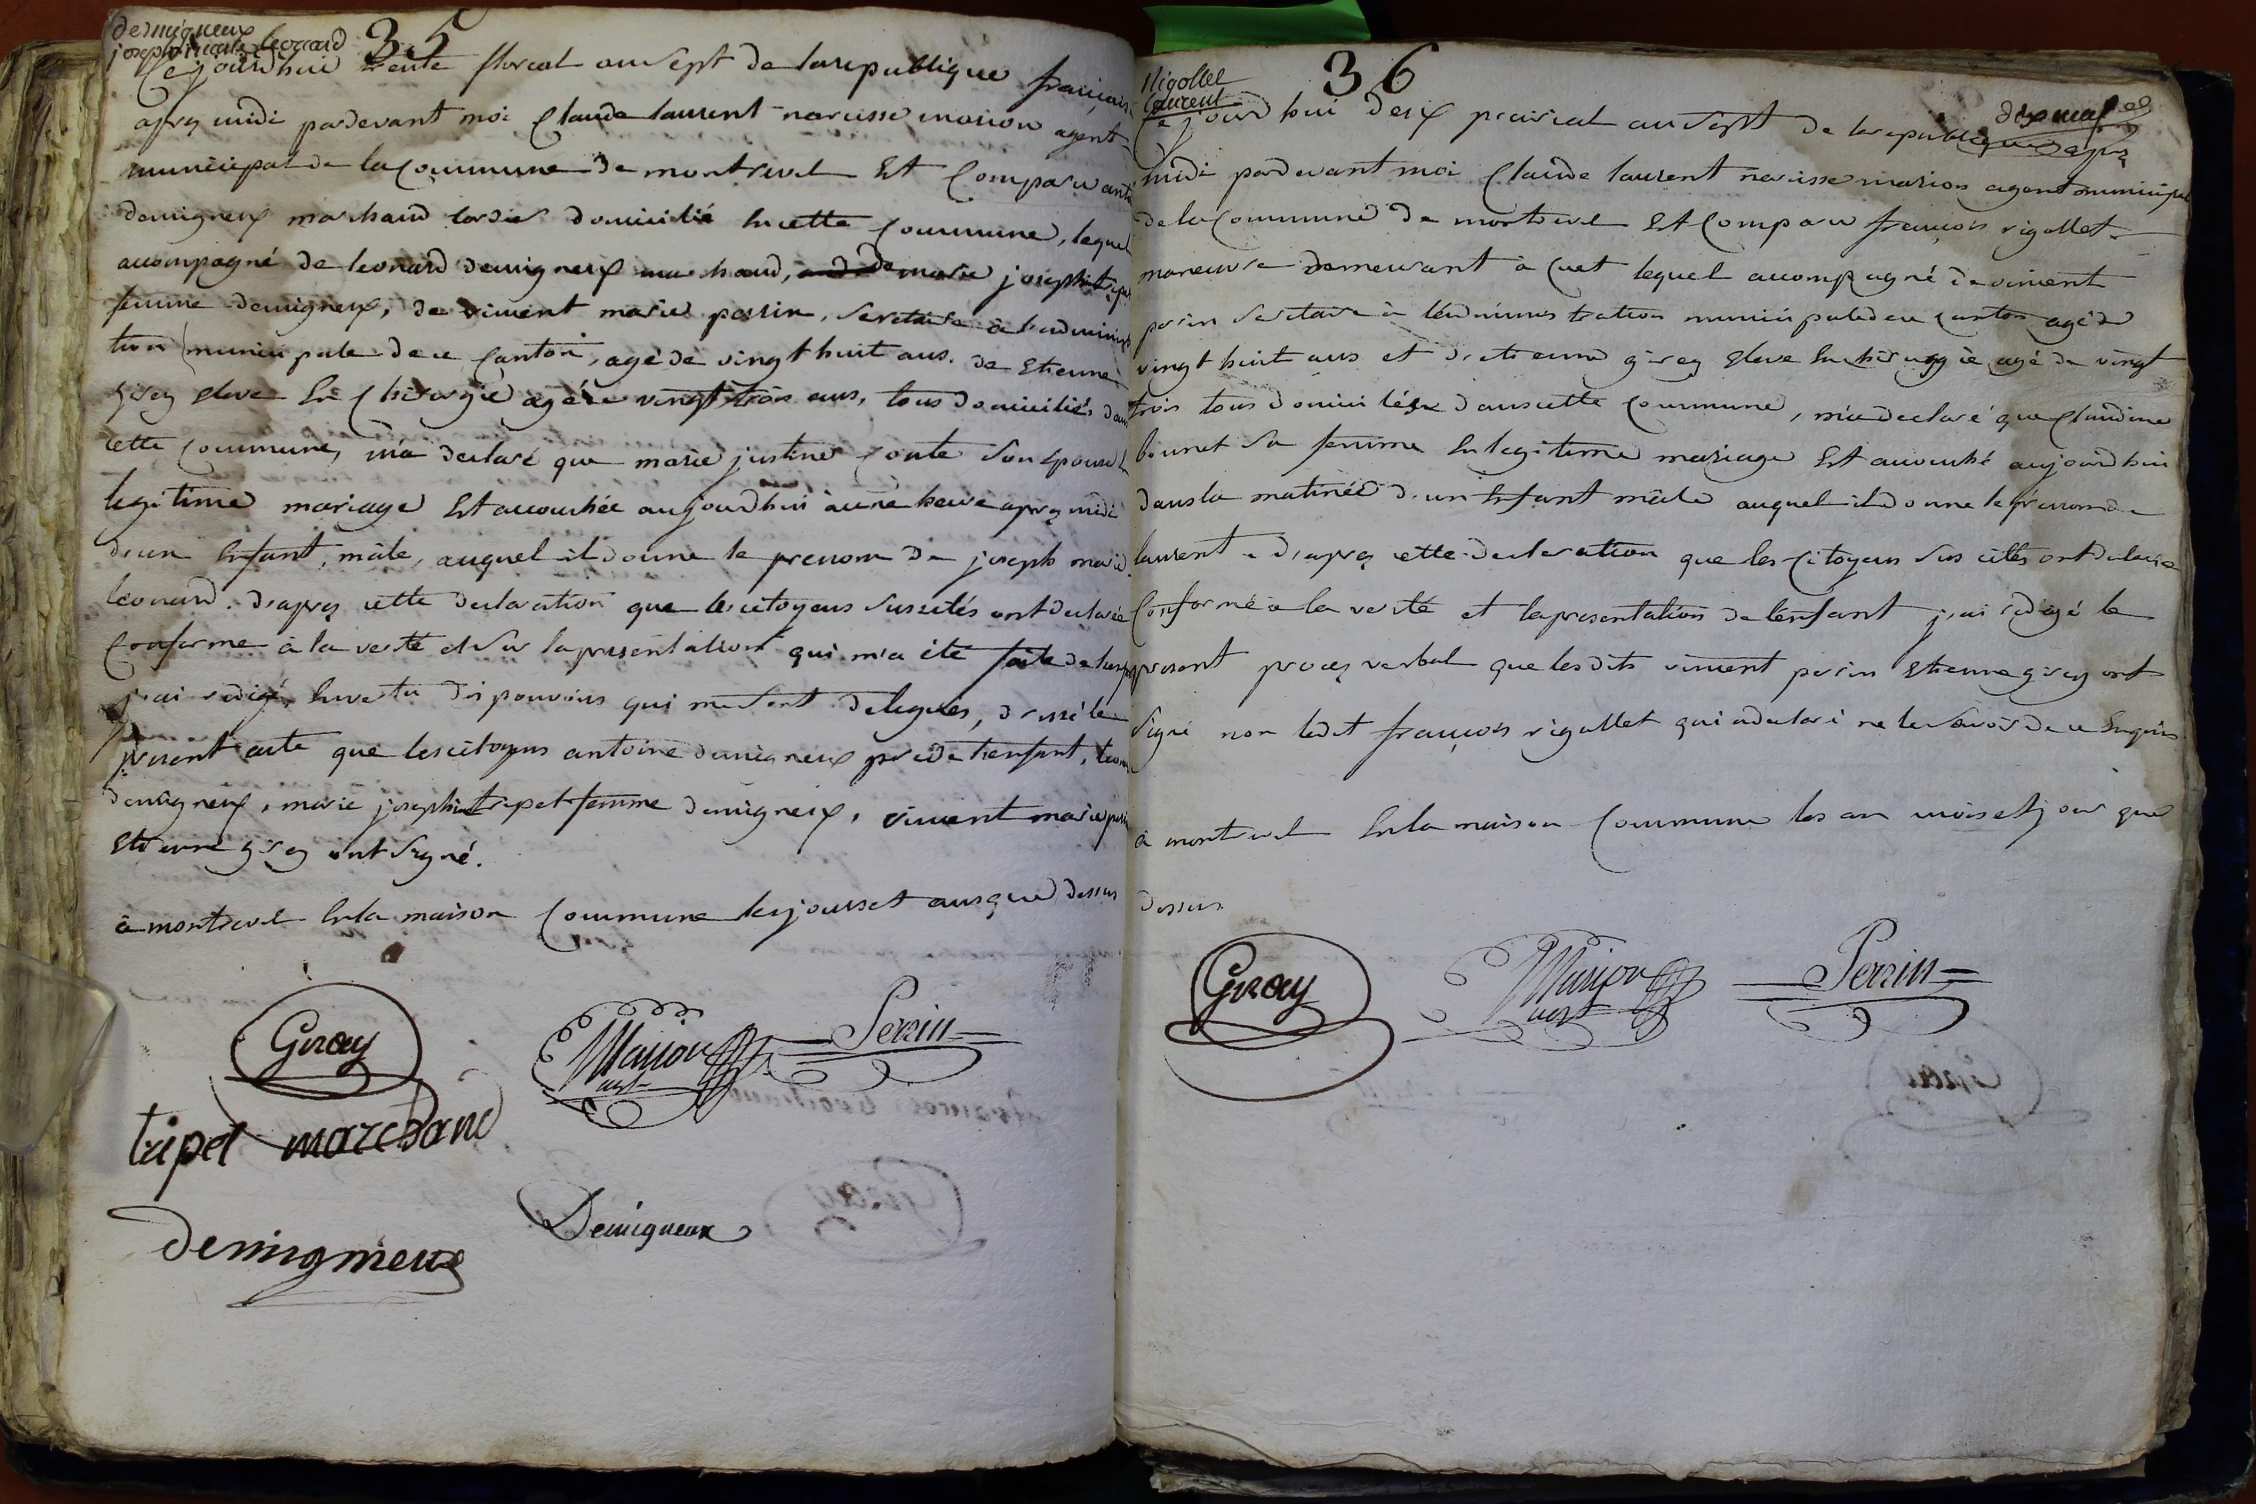 demigneux
joseph marie leonard
35
Cejourdhui trente floreal an Sept de la republique française
apres midi pardevant moi Claude laurent narcisse marion agent
municipal de la Commune de montrevel Est Comparu
demigneux marchand domicilié En cette Commune, lequel
acompagné de leonard demigneux marchand, de marie josephte
femme demigneux, de vincent marie perrin, Secretaire à l'administra
tion municipale de ce Canton, agé de vingt huit ans. de Etienne
girey Eleve En Chirurgie agé de vingt trois ans, tous domiciliés dans
cette Commune, m'a declaré que marie justine Conte Son Epouse En
legitime mariage Est accouchée aujourdhui à une heure apres midi
d'un Enfant mâle, auquel il donne le prenom de joseph marie
leonard. d'apres cette declaration que les citoyens Sussités ont declarée
Conforme à la verité et Sur la presentation qui m'a été faite de
j'ai redigé, En vertu des pouvoirs qui me Sont delegués, dressé le
present acte que les citoyens antoine demigneux pere de l'enfant,
demigneux, marie josephte tripet femme demigneux, vincent marie
Etienne girey ont Signé.
à montrevel En la maison Commune les jours et ans que dessus
Giray
Marion
agt
Perrin
tripet marchand
demigneux
Demigneux
36
Rigollet
laurent
Cejourdhui deux prairial an Sept de la republique apres
midi pardevant moi Claude laurent narcisse marion agent municipal
de la Commune de montrevel Est Comparu françois rigollet
manoeuvre demeurant à Cuet lequel accompagné de vincent
perrin Secretaire à l'administration municipale de ce Canton agé de
vingt huit ans et de etienne girey Eleve En chirurgie agé de vingt
trois tous domiciliés dans cette Commune, m'a declaré que Claudine
bonnet Sa femme En legitime mariage Est accouché aujourdhui
dans la matinée d'un Enfant mâle auquel il donne le prenom de
laurent d'apres cette declaration que les Citoyens Sus cités ont declarée
Conforme à la verité et la presentation de l'enfant j'ai redigé le
present procez verbal que lesdits vincent perrin Etienne girey ont
Signé non ledit françois rigollet qui a declaré ne le Savoir de ce Enquis
à montrevel En la maison Commune les an mois et jour que
dessus
Giray
Marion
agt
Perrin